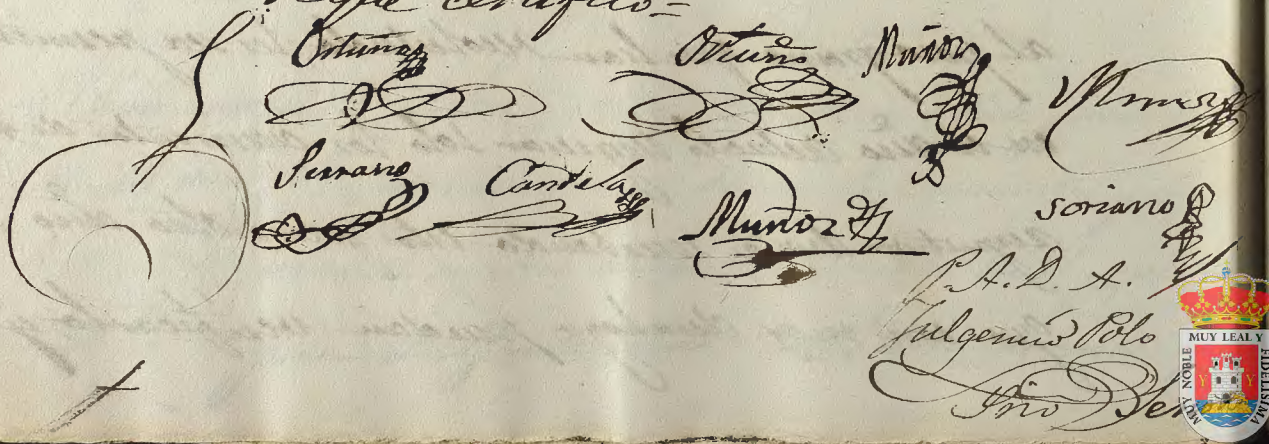 que certifico =
Ortuño Ortuño Muñoz Muñoz
Serrano Candela Muñoz Soriano
P. A. D. A.
Fulgencio Polo
Srio
MUY NOBLE MUY LEAL Y FIDELISIMA
Y Y